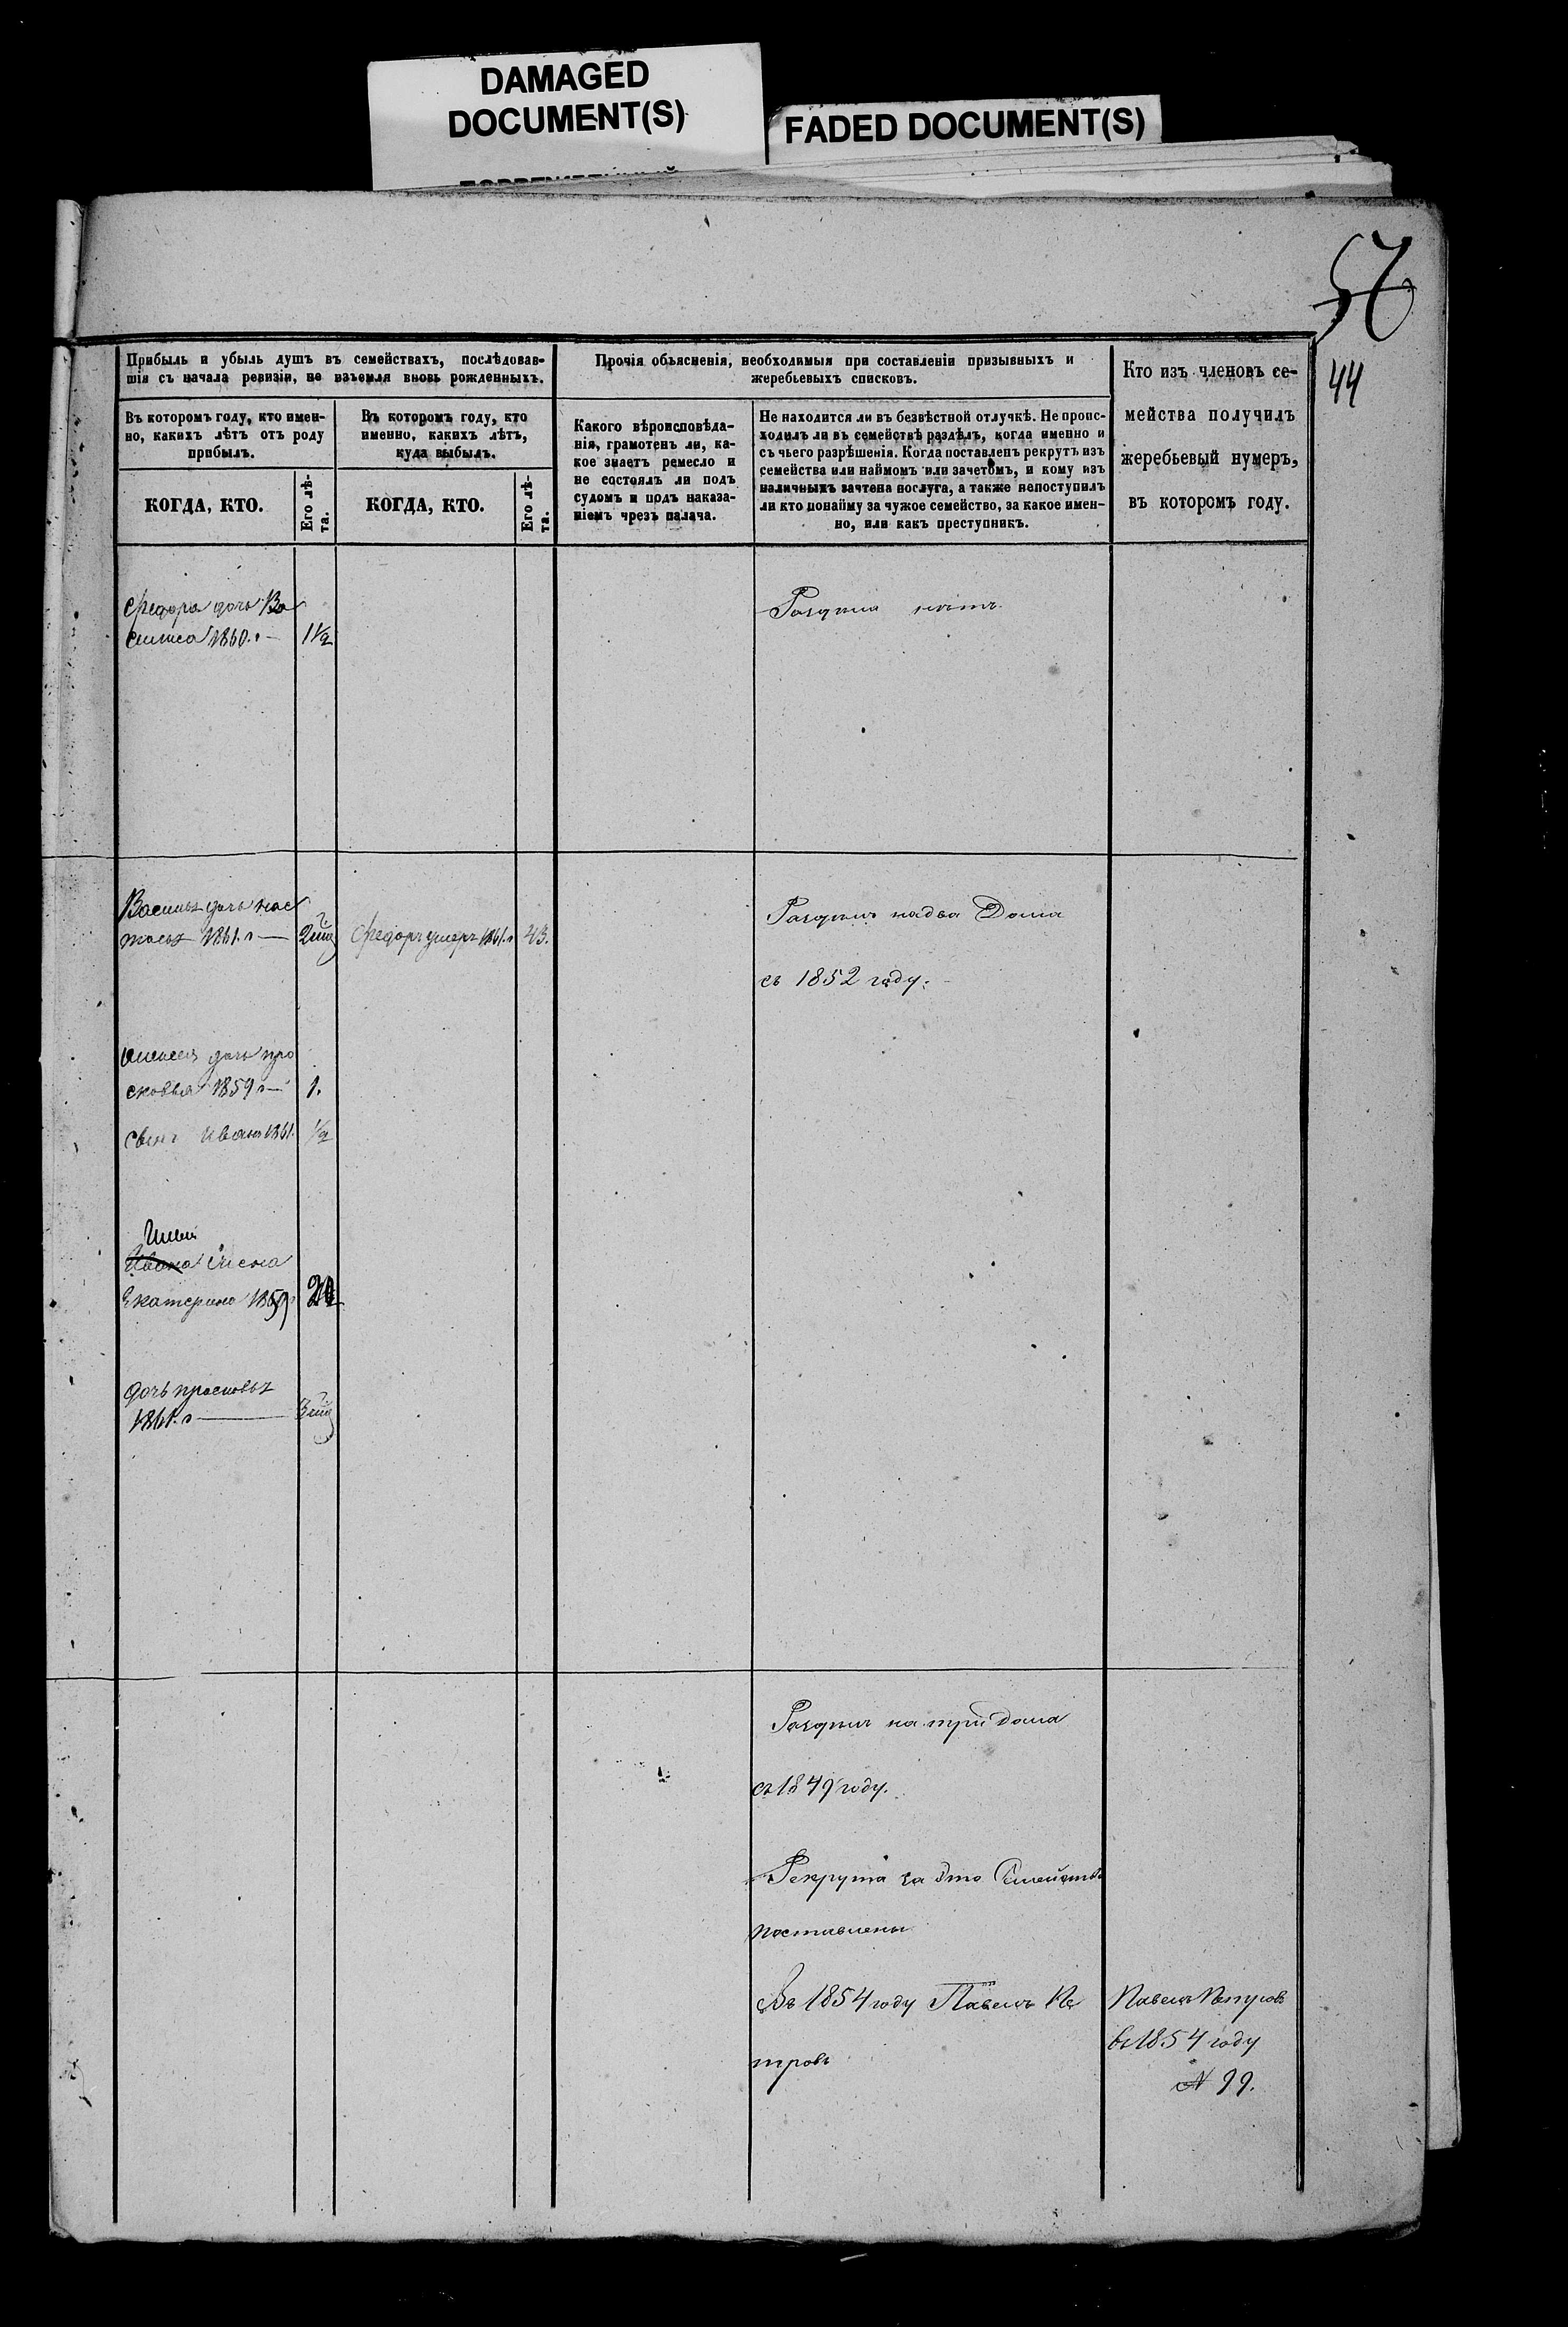 DAMAGED
DOCUMENT(S)
FADED DOCUMENT(S)
44
Прибыль и убыль душъ въ семействахъ, послѣдовав-
шія съ начала ревизіи, не изъемля вновь рожденныхъ.
Въ которомъ году, кто имен-
но, какихъ лѣтъ отъ роду
прибылъ.
КОГДА, КТО.
Его лѣ-
та.
Въ которомъ году, кто
именно, какихъ лѣтъ,
куда выбылъ.
КОГДА, КТО.
Его лѣ-
та.
Прочія объясненія, необходимыя при составленіи призывныхъ и
жеребьевыхъ списковъ.
Какого вѣроисповѣда-
нія, грамотенъ ли, ка-
кое знаетъ ремесло и
не состоялъ ли подъ
судомъ и подъ наказа-
ніемъ чрезъ палача.
Не находится ли въ безвѣстной отлучкѣ. Не проис-
ходилъ ли въ семействѣ раздѣлъ, когда именно и
съ чьего разрѣшенія. Когда поставленъ рекрутъ изъ
семейства или наймомъ или зачетомъ, и кому изъ
наличныхъ зачтена послуга, а также непоступилъ
ли кто понайму за чужое семейство, за какое имен-
но, или какъ преступникъ.
Кто изъ членовъ се-
мейства получилъ
жеребьевый нумеръ,
въ которомъ году.
Федора дочь Ва
силиса 1860. г 1 1/2
Раздела нетъ
Василья дочь нас
тасья 1861. г
Федоръ умеръ 1861. г 43.
Разделъ на два Дома
съ 1852 году.
Алексея дочь про
сковья 1859 г 1.
сынъ Иванъ 1861. 1/2
Ивана жена
Екатерина 1859
дочь просковья
1861. г
Разделъ на три Дома
съ 1849 году.
Рекрута за это Семейство
поставлены
Въ 1854 году Павелъ Пе
тровъ
Павелъ Петровъ
въ 1854 году
№ 99.